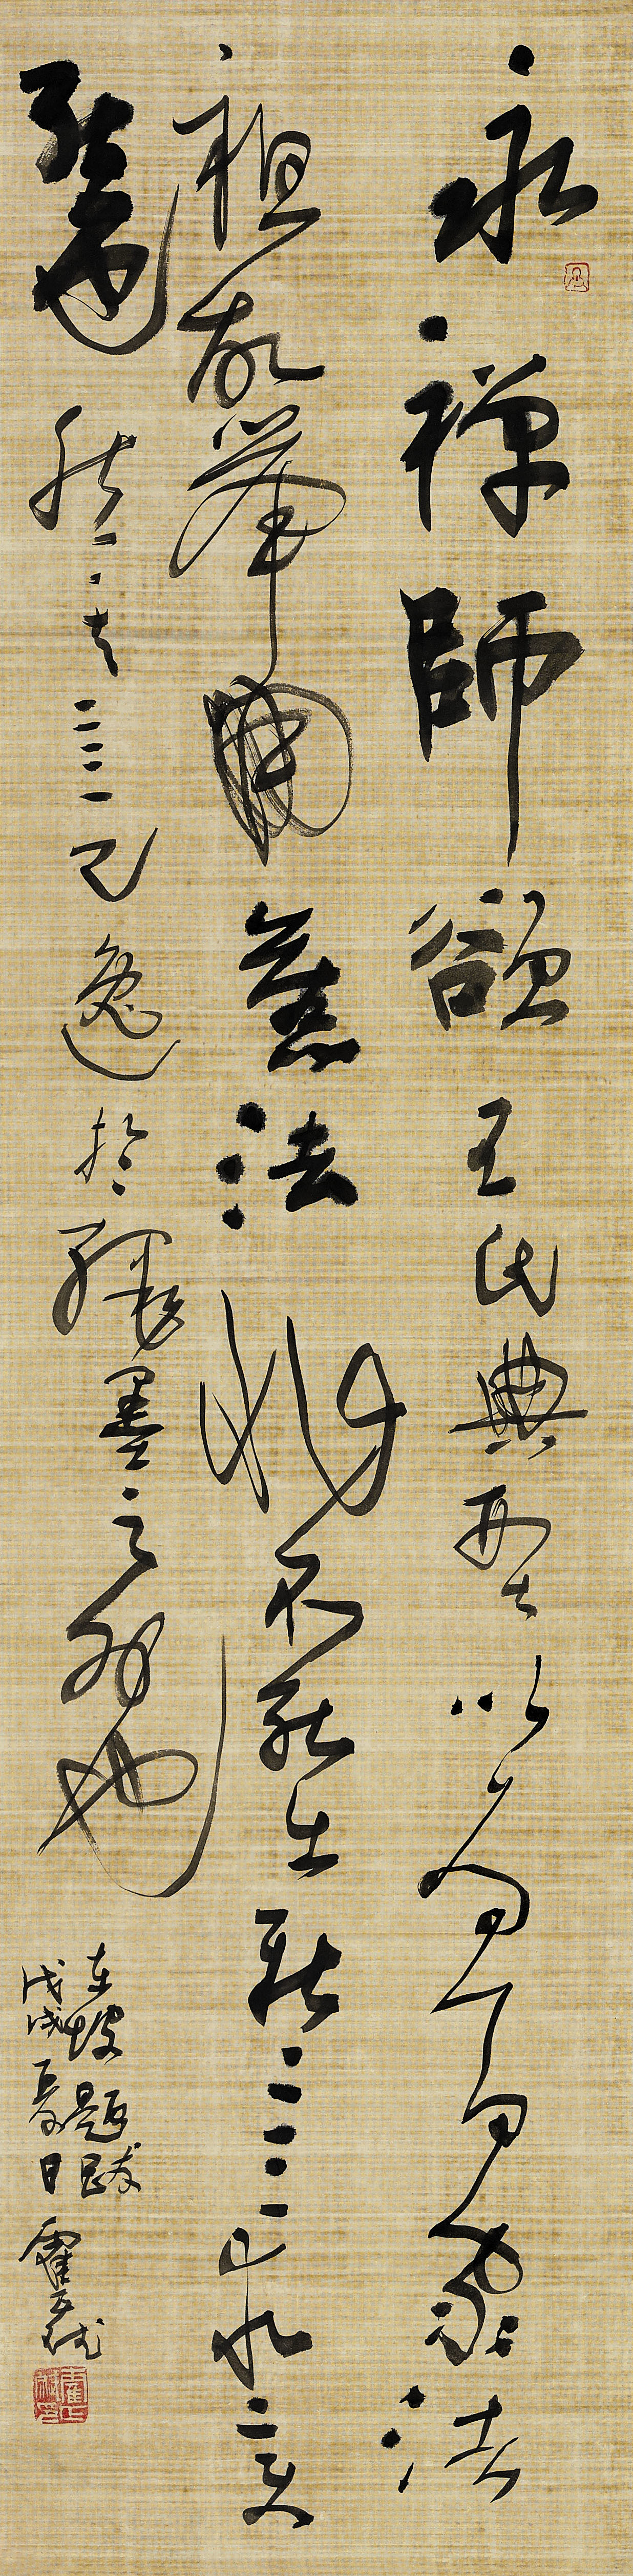 永禪師欲王氏典型以為百家法
祖故舉用舊法非不能出新意求變
態也然其意已逸於繩墨之外也
东坡題跋
戊戌日霍